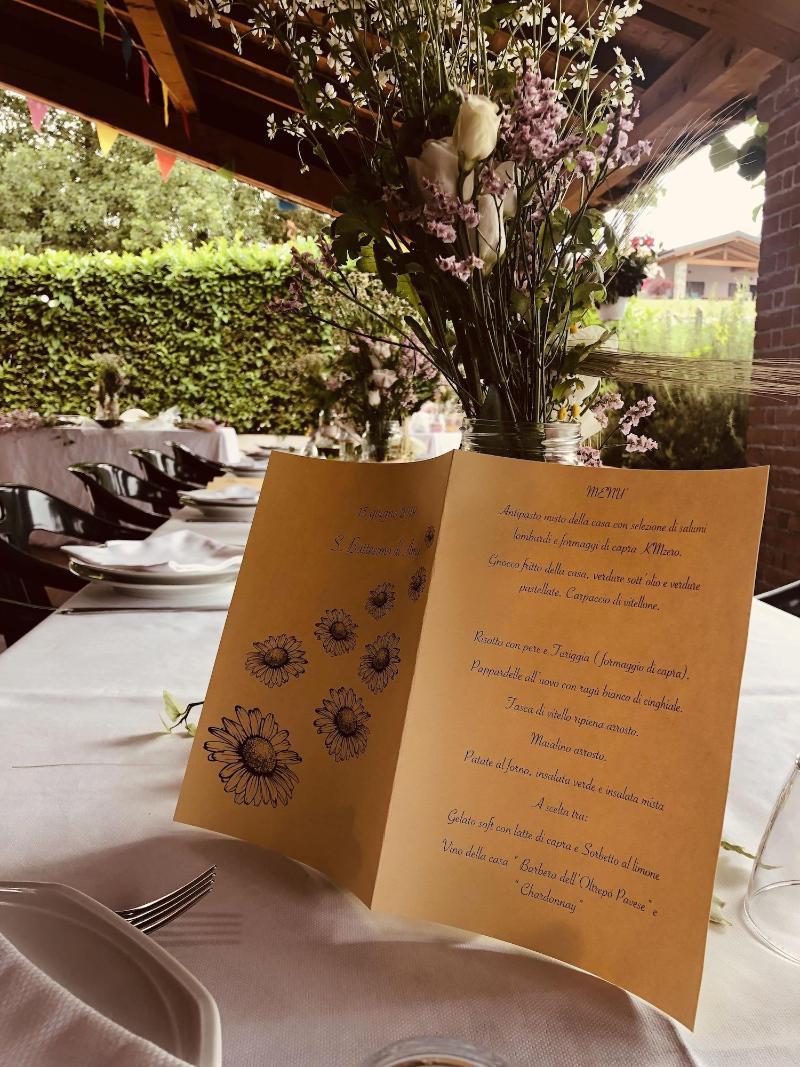 15 giugno
S.
MENU'
Antipasto misto della casa con selezione di salumi
lombardi e formaggi di capra KMzero.
Gnocco fritto della casa, verdure sott'olio e verdure
pastellate. Carpaccio di vitellone.
Risotto con pere e Toriggia (formaggio di capra).
Pappardelle all'uovo con ragù bianco di cinghiale.
Tasca di vitello ripiena arrosto.
Maialino arrosto.
Patate al forno, insalata verde e insalata mista
A scelta tra:
Gelato soft con latte di capra e Sorbetto al limone
Vino della casa "Barbero dell'Oltrepò Pavese" e
"Chardonnay"